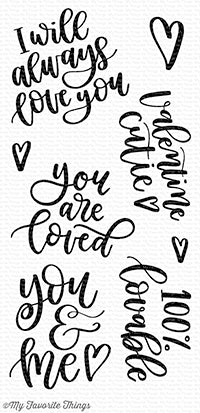 I will
always
love you
Valentine
cutie
you
are
loved
you
&
me
100%
lovable
©My Favorite Things